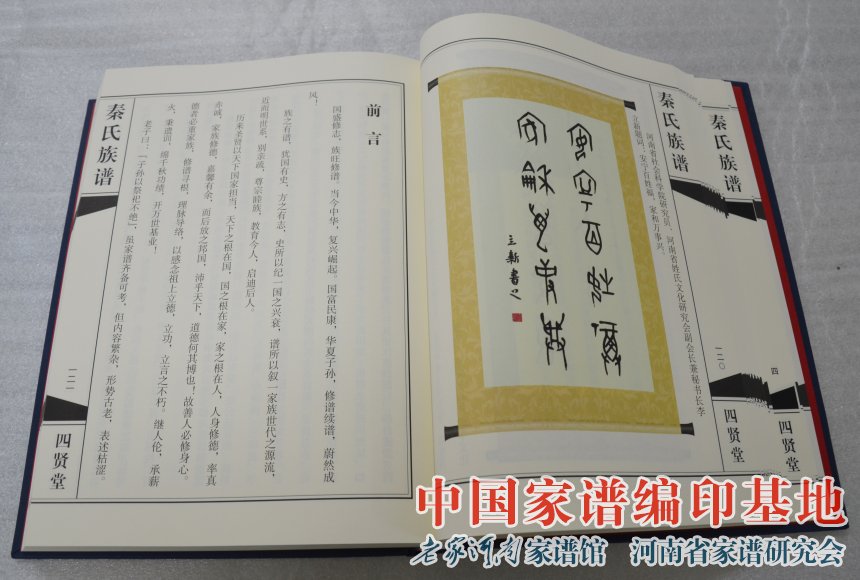 秦氏族谱
一二〇
四
四贤堂
秦氏族谱
四贤堂
河南省社会科学院研究员、河南省姓氏文化研究会副会长兼秘书长李
立新题词：安宁百姓福，家和万事兴。
立新書
前言
国盛修志，族旺修谱。当今中华，复兴崛起。国富民康，华夏子孙，修谱续谱，蔚然成
风！
族之有谱，犹国有史，方之有志，史所以纪一国之兴衰，谱所以叙一家族世代之源流，
近而明世系，别亲疏，尊宗睦族，教育今人，启迪后人。
历来圣贤以天下国家担当，天下之根在国，国之根在家，家之根在人，人身修德，率真
赤诚，家族修德，嘉馨有余，而后放之邦国，沛乎天下，道德何其博也！故善人必修身心。
德者必重家族，修谱寻根，理脉导络，以感念祖上立德，立功，立言之不朽。继人伦，承薪
火，秉遗训，绵千秋功绩，开万世基业！
老子曰：“子孙以祭祀不绝”，虽家谱齐备可考，但内容繁杂，形势古老，表述枯涩。
秦氏族谱
一二一
四贤堂
中国家谱编印基地
老家河南家谱馆 河南省家谱研究会